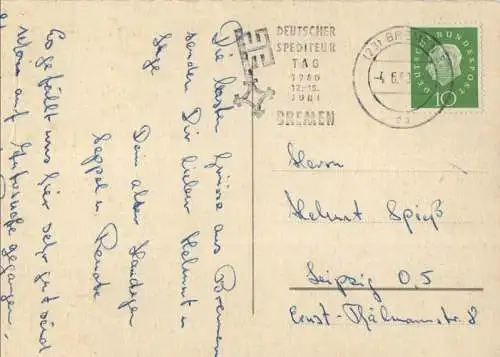 DEUTSCHER
SPEDITEUR
TAG
1960
12.-15.
JUNI
BREMEN
(23) BRE
-4.6.6
DEUTSCHE BUNDESPOST
10
Die besten Grüsse aus Bremen
senden Dir lieber Helmut u.
Dein alter
Seppel u.
Es gefällt uns hier sehr gut sind
auf gegangen.
Herrn
Helmut Spieß
Leipzig O.5
Ernst-Thälmannstr. 8